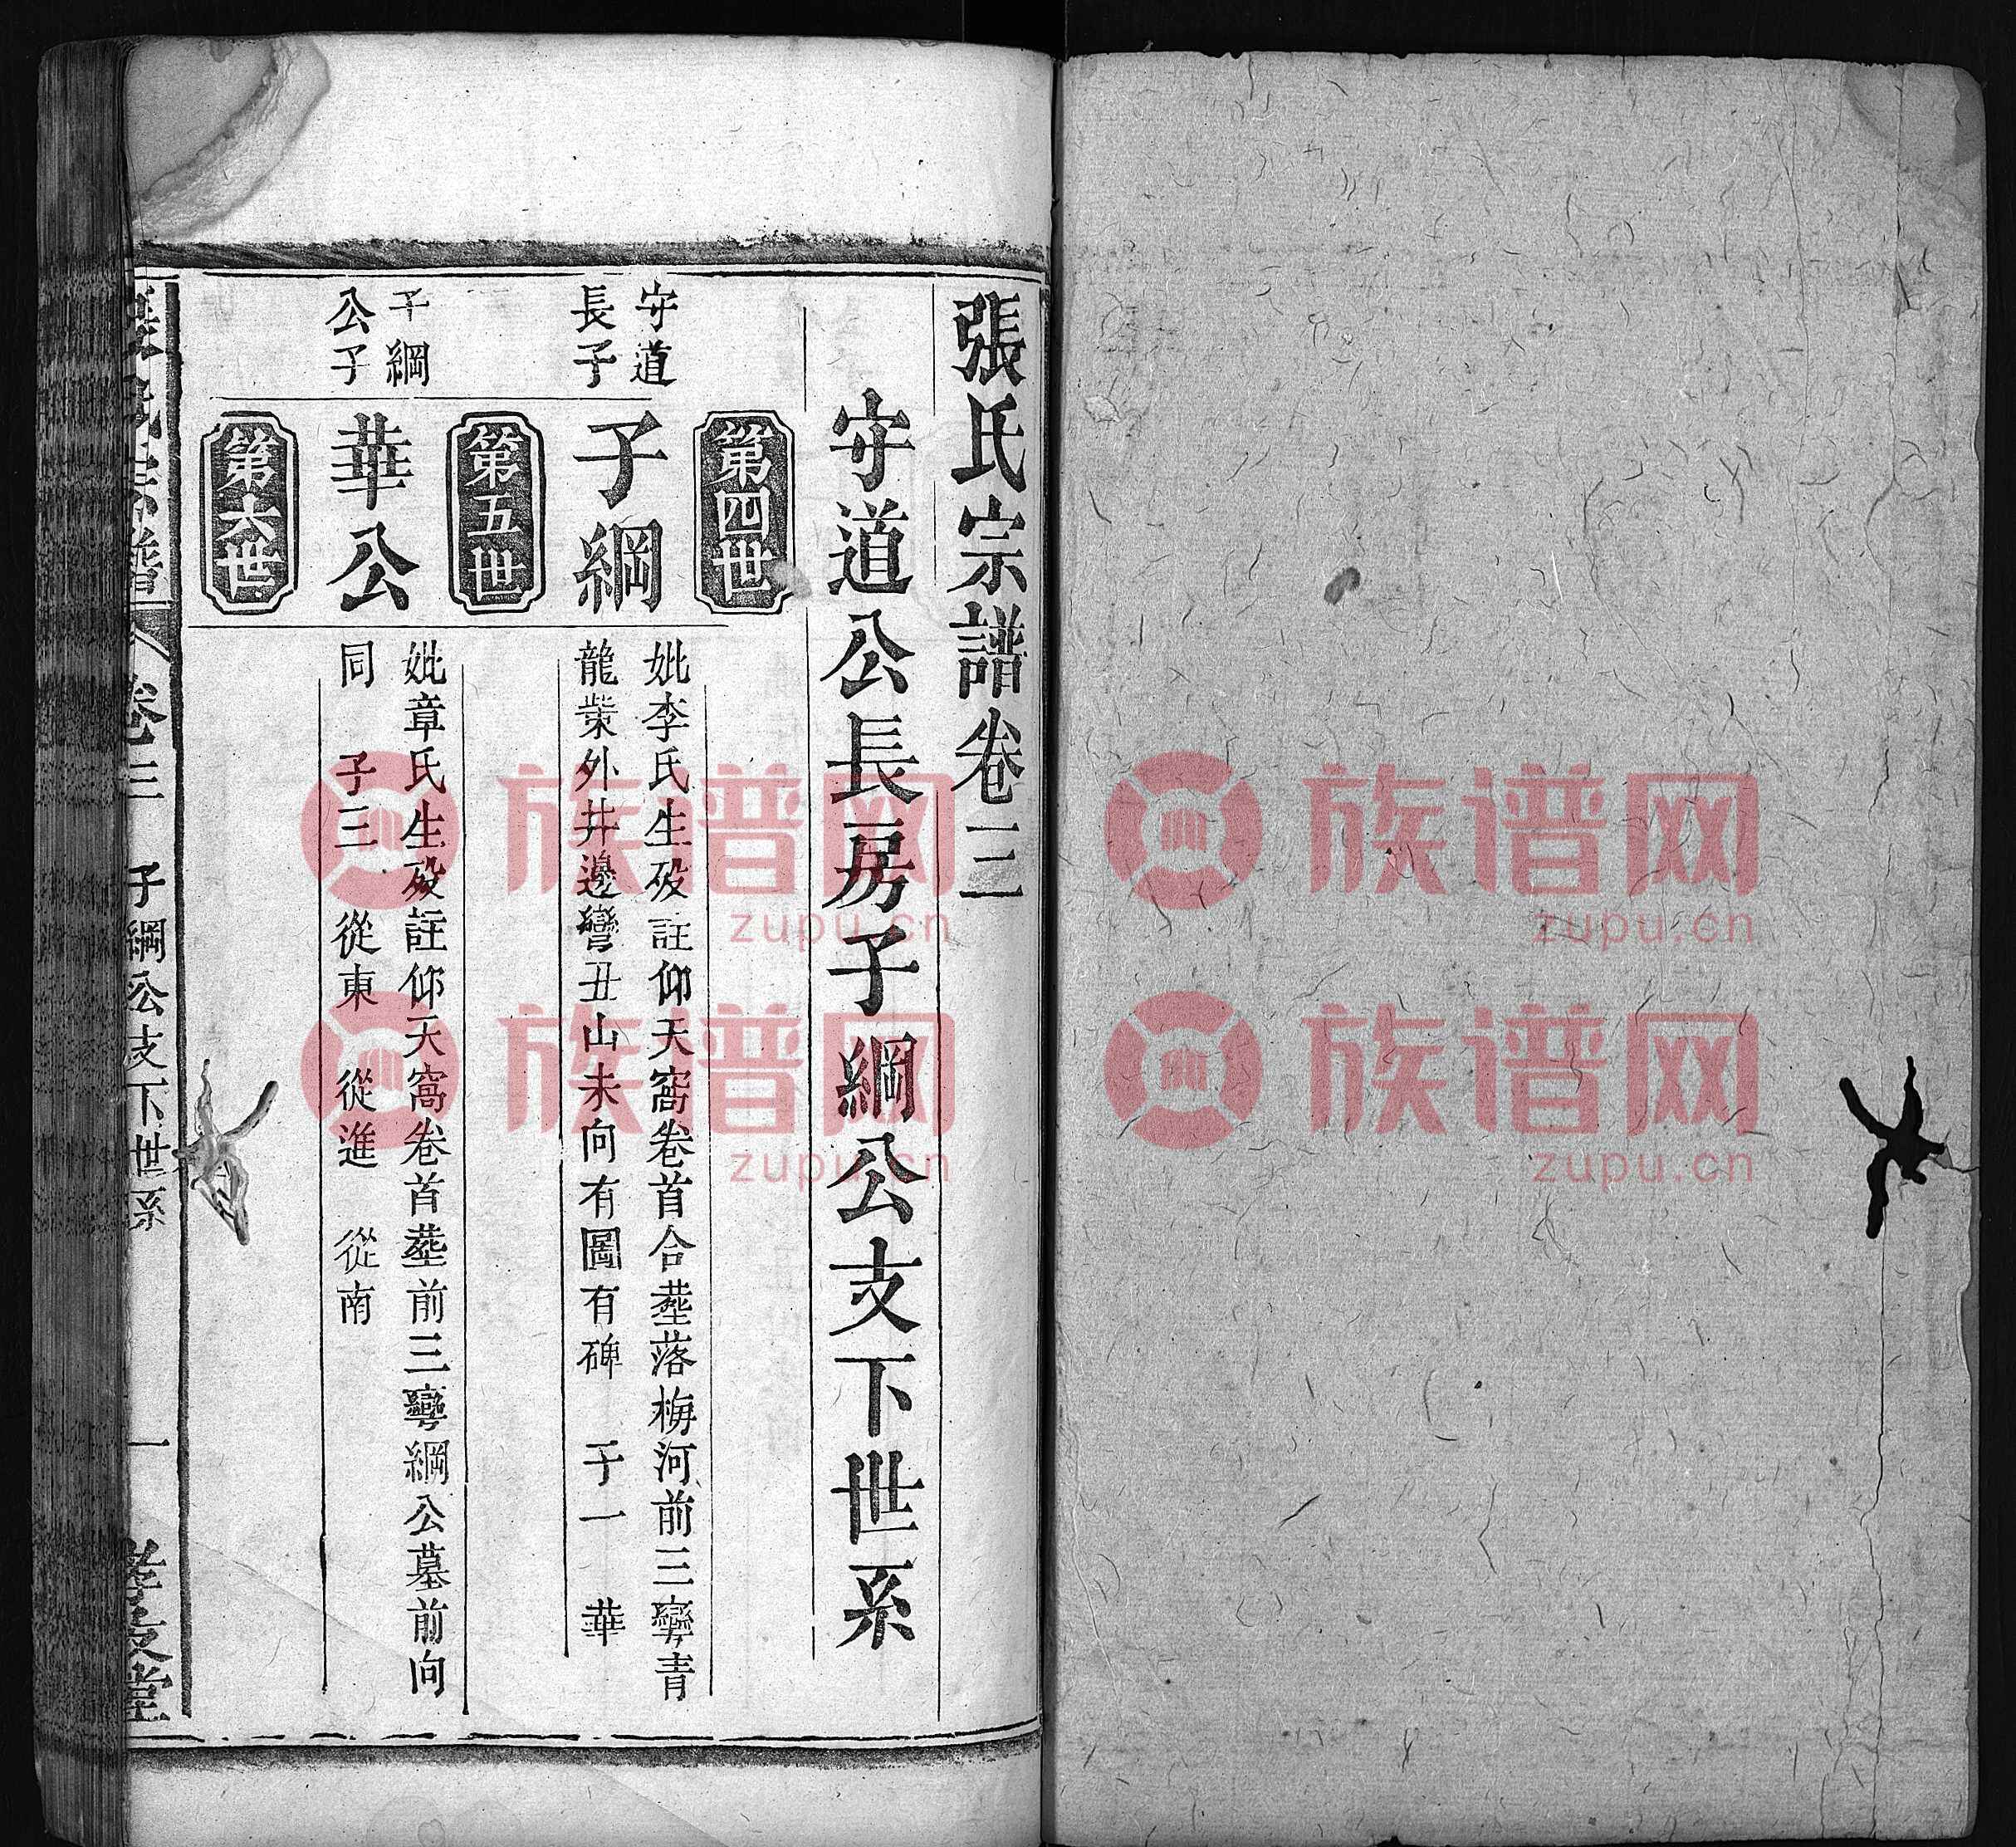 張氏宗譜卷三
守道公長房子綱公支下世系
第四世
守道
長子
子綱
妣李氏生歿註仰天窩卷首合塟落梅河前三彎青
龍柴外井邊彎丑山未向有圖有碑 子一 華
第五世
子綱
公子
華公
妣章氏生歿註仰天窩卷首塟前三彎綱公墓前向
同 子三 從東 從進 從南
第六世
張氏宗譜 卷三 子綱公支下世系 一 孝友堂
族谱网
zupu.cn
族谱网
zupu.cn
族谱网
zupu.cn
族谱网
zupu.cn